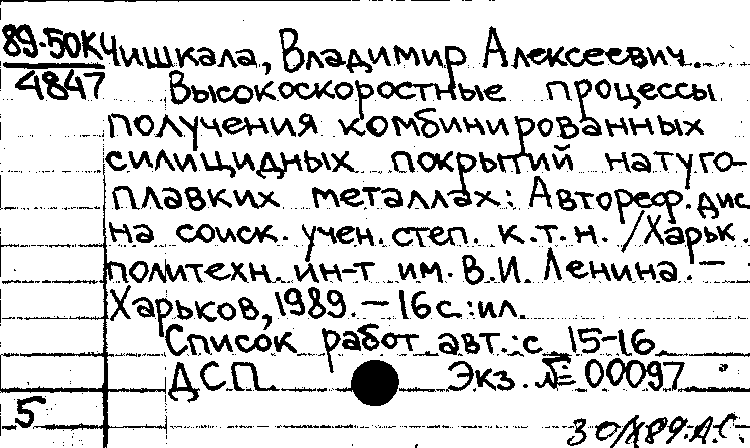 89-50К Чишкала, Владимир Алексеевич.
4847 Высокоскоростные процессы
получения комбинированных
силицидных покрытий на туго-
плавких металлах: Автореф. дис
на соиск. учен. степ. к.т.н. /Харьк.
политехн. ин-т им. В.И. Ленина.—
Харьков, 1989.—16 с.:ил.
Список работ авт.:с 15-16.
ДСП. Экз. № 00097
5